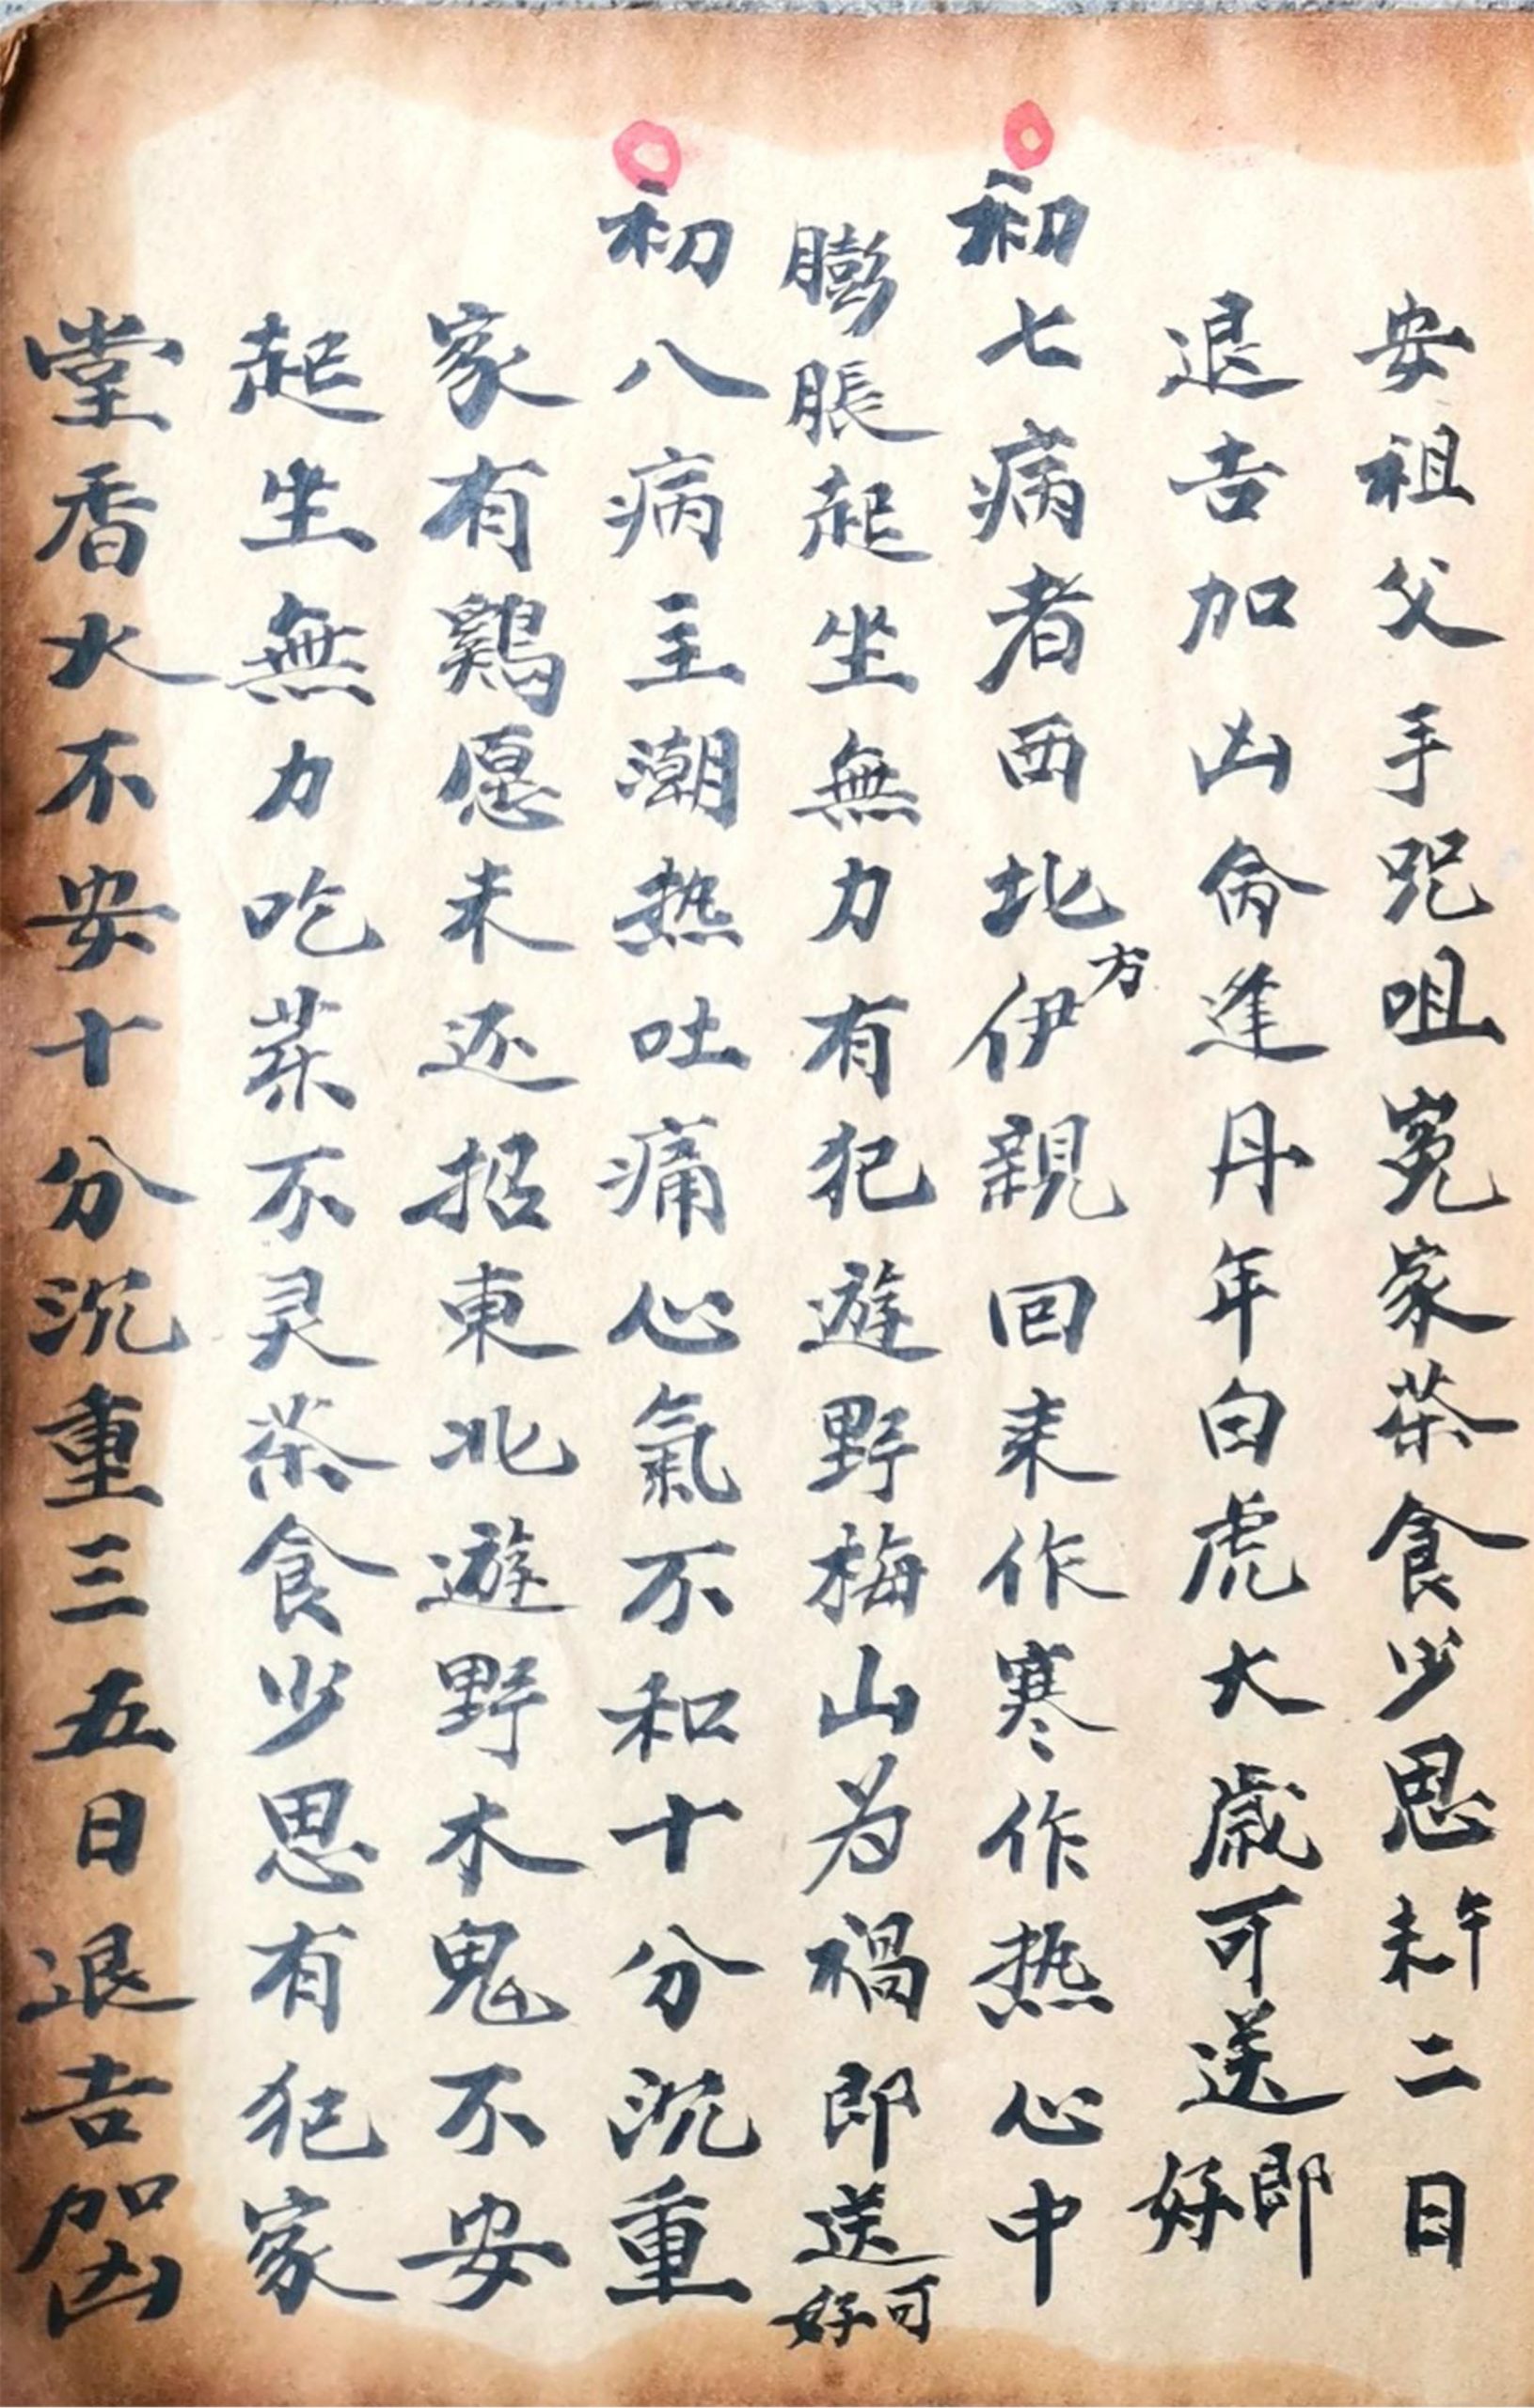 安祖父手咒咀冤家茶食少思午未二日
退吉加凶侖逢丹年白虎大歲可送即好
初七病者西北方伊親回来作寒作热心中
膨脹起坐無力有犯遊野梅山為禍即送可好
初八病主潮热吐痛心氣不和十分沉重
家有鷄愿未还招東北遊野木鬼不安
起坐無力吃茶不灵茶食少思有犯家
堂香火不安十分沉重三五日退吉加凶